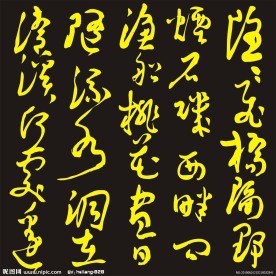 隐隐飞桥隔野
烟石矶西畔问
渔船桃花尽日
随流水洞在
清溪何处边
昵图网 www.nipic.com